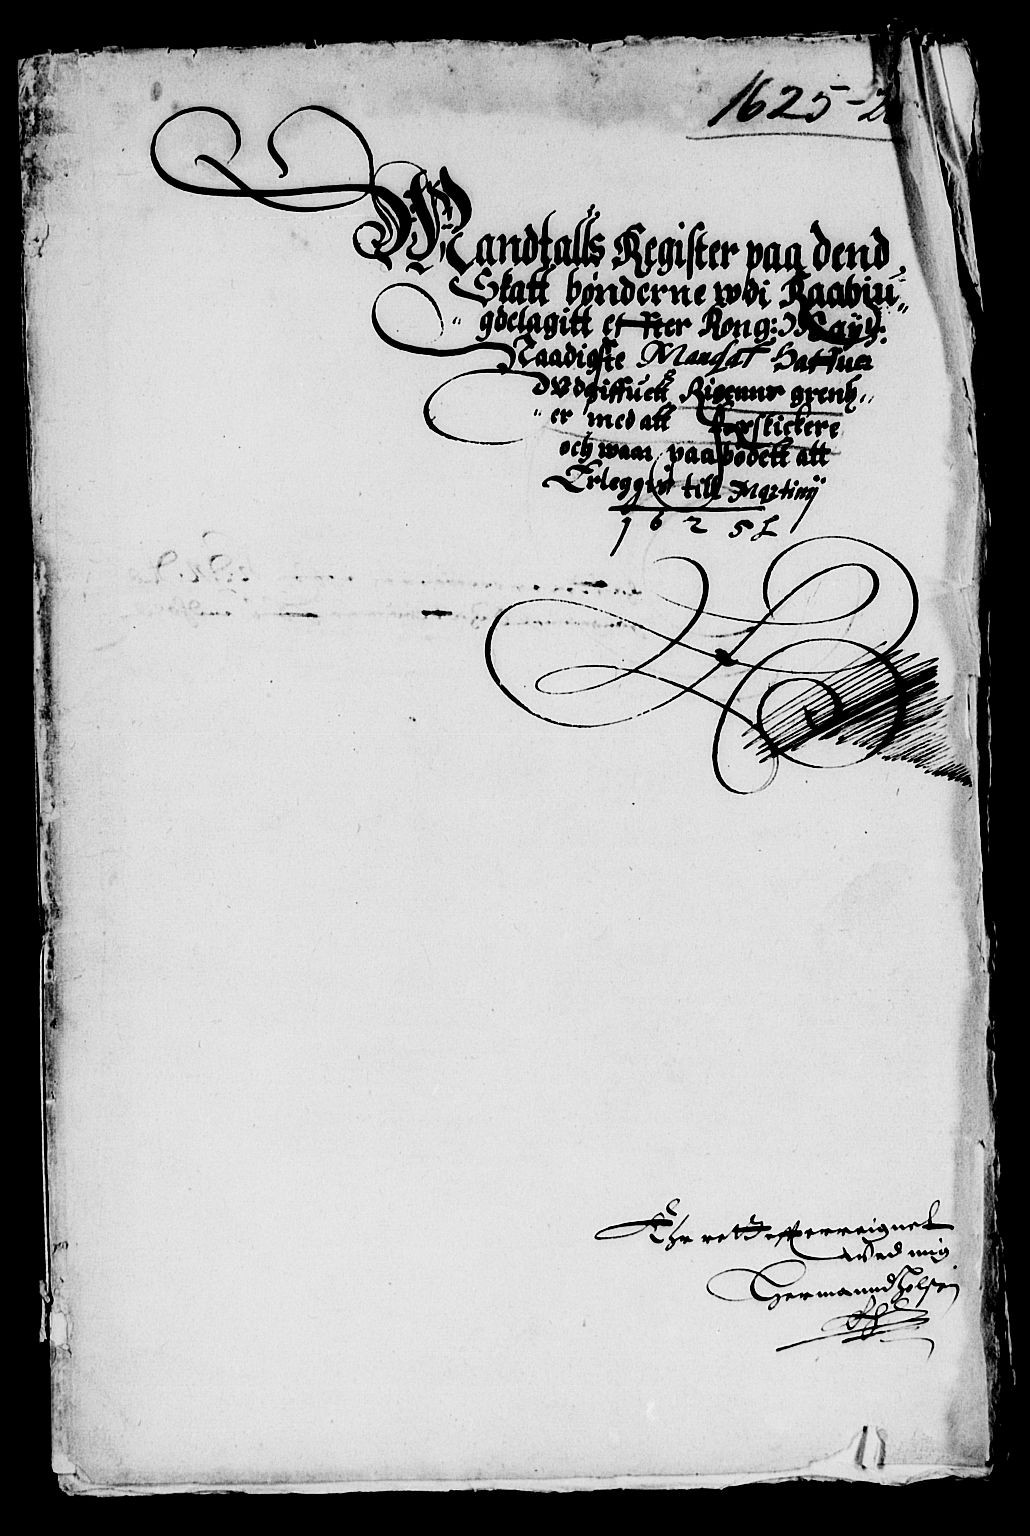 1625-2
Mandtalls Register paa dend
Skatt bønderne wdi Raabiu„
„gdelagitt effter Kong: Mayt:
Naadigste Mandat Haffuer
Vdgiffuett Rigenns grenh„
„er med att forstickere
och waar paabødett att
Erleggis till Martinj
1625
Ehr rett effterreignet
Wed mig
Hermannd